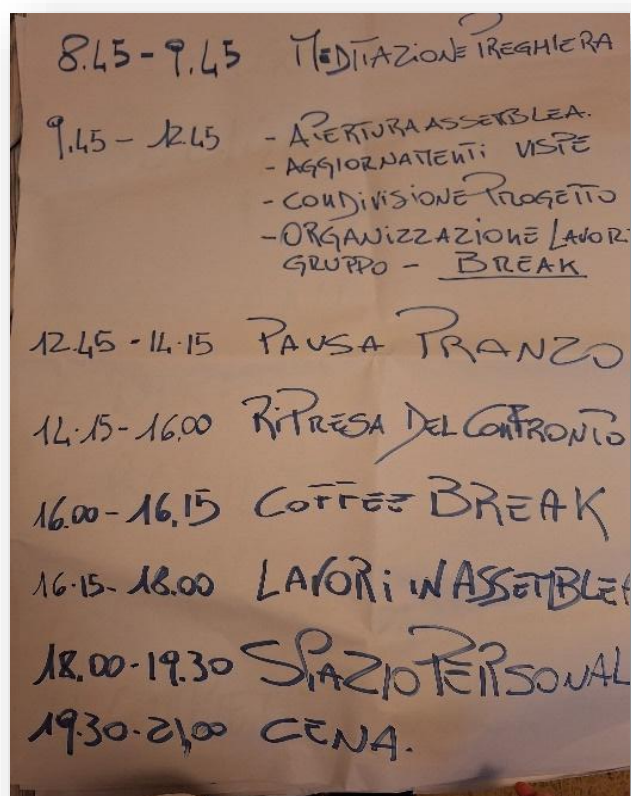 8.45 - 9.45 MEDITAZIONE PREGHIERA
9.45 - 12.45 - APERTURA ASSEMBLEA.
- AGGIORNAMENTI VISPE
- CONDIVISIONE PROGETTO
- ORGANIZZAZIONE LAVORI
GRUPPO - BREAK
12.45 - 14.15 PAUSA PRANZO
14.15 - 16.00 RIPRESA DEL CONFRONTO
16.00 - 16.15 COFFEE BREAK
16.15 - 18.00 LAVORI IN ASSEMBLEA
18.00 - 19.30 SPAZIO PERSONAL
19.30 - 21,00 CENA.